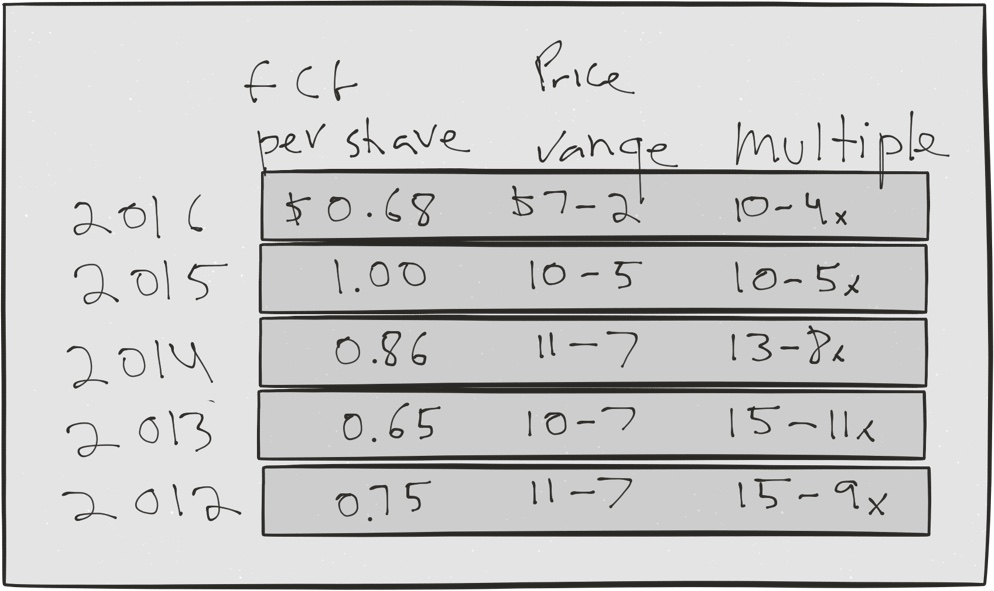 FCF Price
per share range multiple
2016 $0.68 $7-2 10-4x
2015 1.00 10-5 10-5x
2014 0.86 11-7 13-8x
2013 0.65 10-7 15-11x
2012 0.75 11-7 15-9x